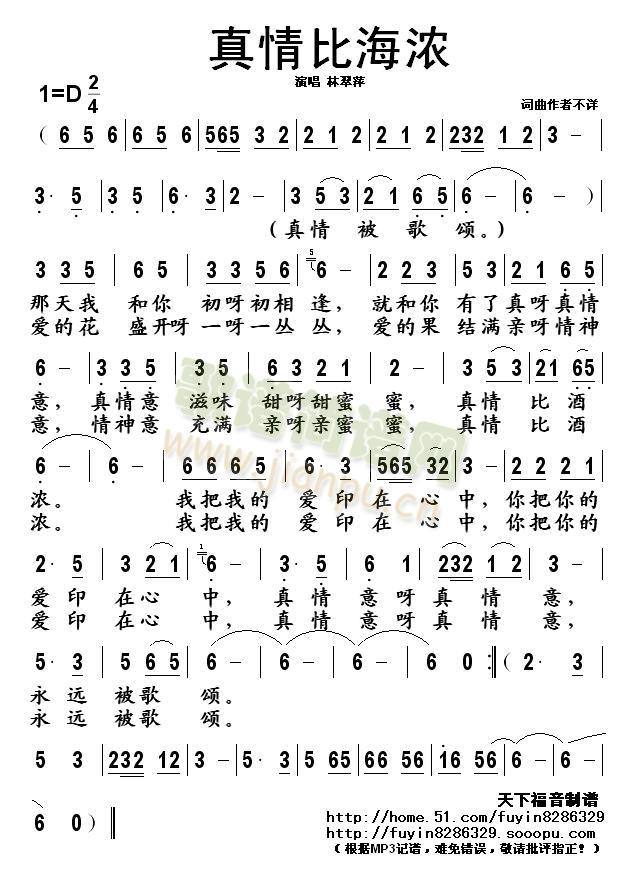 真情比海浓
演唱 林翠萍
1=D 2/4
词曲作者不详
( 6 5 6 | 6 6 | 565 3 2 | 2 1 2 | 2 1 2 | 232 1 2 | 3 –
3· 5 | 3 5 | 6· 3 | 2 – | 3 5 3 | 2 1 6 5 | 6 – | 6 – )
(真情 被 歌 颂。)
3 3 5 | 6 5 | 3 3 5 6 | 5 6 – | 2 2 3 | 5 5 | 2 1 6 5
那天我 和你 初呀初相 逢， 就和你 有了真呀真情
爱的花 盛开呀 一呀一丛 丛， 爱的果 结满亲呀情神
6 – | 3 3 5 | 3 5 | 6 3 2 1 | 2 – | 3 5 3 | 21 65
意， 真情意 滋味 甜呀甜蜜 蜜， 真情 比酒
意， 情神意 充满 亲呀亲蜜 蜜， 真情 比酒
6 – | 6 – | 6 6 6 5 | 6· 3 | 565 32 | 3 – | 2 2 2 1
浓。 我把我的 爱印在 心中， 你把你的
浓。 我把我的 爱印在 心中， 你把你的
2· 5 | 3 2 1 | 1 6 – | 3· 5 | 6 1 | 232 1 2 | 3 –
爱印 在心 中， 真情意呀真 情 意，
爱印 在心 中， 真情意呀真 情 意，
5· 3 | 5 6 5 | 6 – | 6 – | 6 – | 6 0 :‖ ( 2· 3
永远 被歌 颂。
永远 被歌 颂。
5 3 | 232 12 | 3 – | 3 – | 5 65 | 66 56 | 16 56 | 6 – | 6 –
6 0 ) ‖
天下福音制谱
http://home.51.com/fuyin8286329
http://fuyin8286329.sooopu.com
（根据MP3记谱，难免错误，敬请批评指正！）
www.jianpu.cn